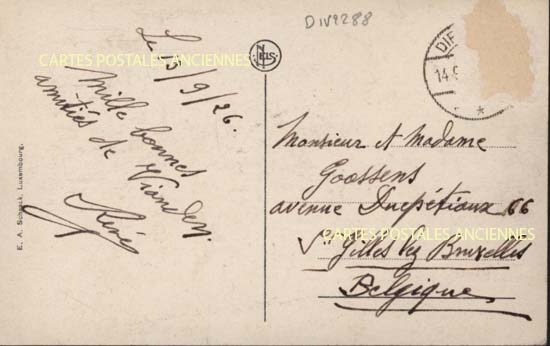 DIV9288
CARTES POSTALES ANCIENNES
Le 13/9/26.
Mille bonnes
amitiés de Vianden.
René
E. A. Schaack, Luxembourg.
NELS
DIF
14.9
Monsieur et Madame
Goossens
avenue Ducpétiaux 66
CARTES POSTALES ANCIENNES
St Gilles lez Bruxelles
Belgique